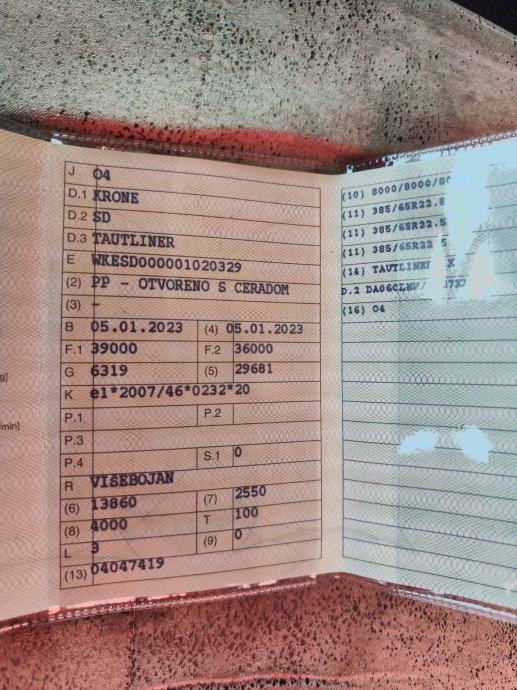 g]
min]
J O4
D.1 KRONE
D.2 SD
D.3 TAUTLINER
E WKESD000001020329
(2) PP - OTVORENO S CERADOM
(3) -
B 05.01.2023 (4) 05.01.2023
F.1 39000 F.2 36000
G 6319 (5) 29681
K e1*2007/46*0232*20
P.1 P.2
P.3
P.4 S.1 0
R VIŠEBOJAN
(6) 13860 (7) 2550
(8) 4000 T 100
L 3 (9) 0
(13) 04047419
(10) 8000/8000/
(11) 385/65R22.5
(11) 385/65R22.5
(11) 385/65R22.5
(14)
D.2
(16) O4